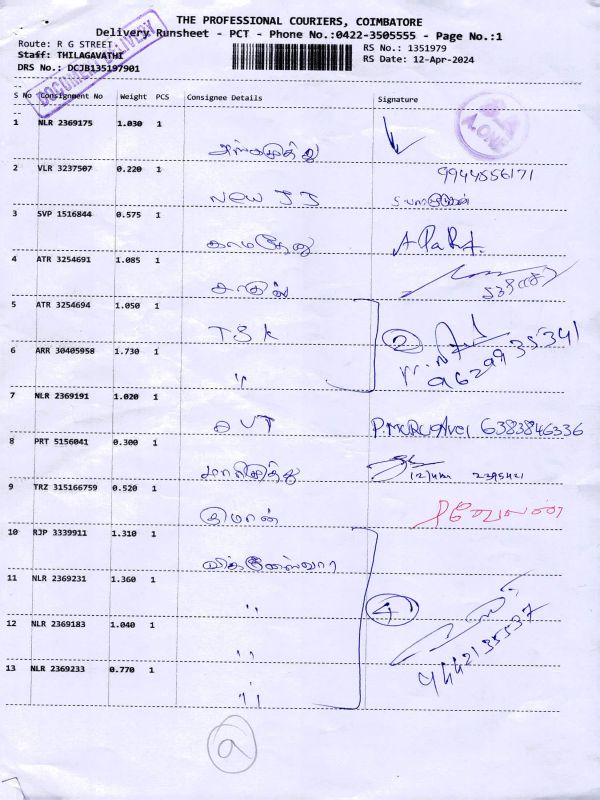 THE PROFESSIONAL COURIERS, COIMBATORE
Delivery Runsheet - PCT - Phone No.:0422-3505555 - Page No.:1
Route: R G STREET
RS No.: 1351979
Staff: THILAGAVATHI
RS Date: 12-Apr-2024
DRS No.: DCJB135197901
DOCUMENT DELIVERY
S No Consignment No Weight PCS Consignee Details Signature
1 NLR 2369175 1.030 1
2 VLR 3237507 0.220 1 9944556171
NEW JJ
3 SVP 1516844 0.575 1
காமதேனு
4 ATR 3254691 1.085 1
5 ATR 3254694 1.050 1
TSK 2
6 ARR 30405958 1.730 1
〃
7 NLR 2369191 1.020 1
P.MURUGAVEl 6383846336
8 PRT 5156041 0.300 1
மாரிமுத்து
9 TRZ 315166759 0.520 1
10 RJP 3339911 1.310 1
விக்னேஸ்வரா
11 NLR 2369231 1.360 1
〃 4
12 NLR 2369183 1.040 1
〃 9442135537
13 NLR 2369233 0.770 1
〃
a